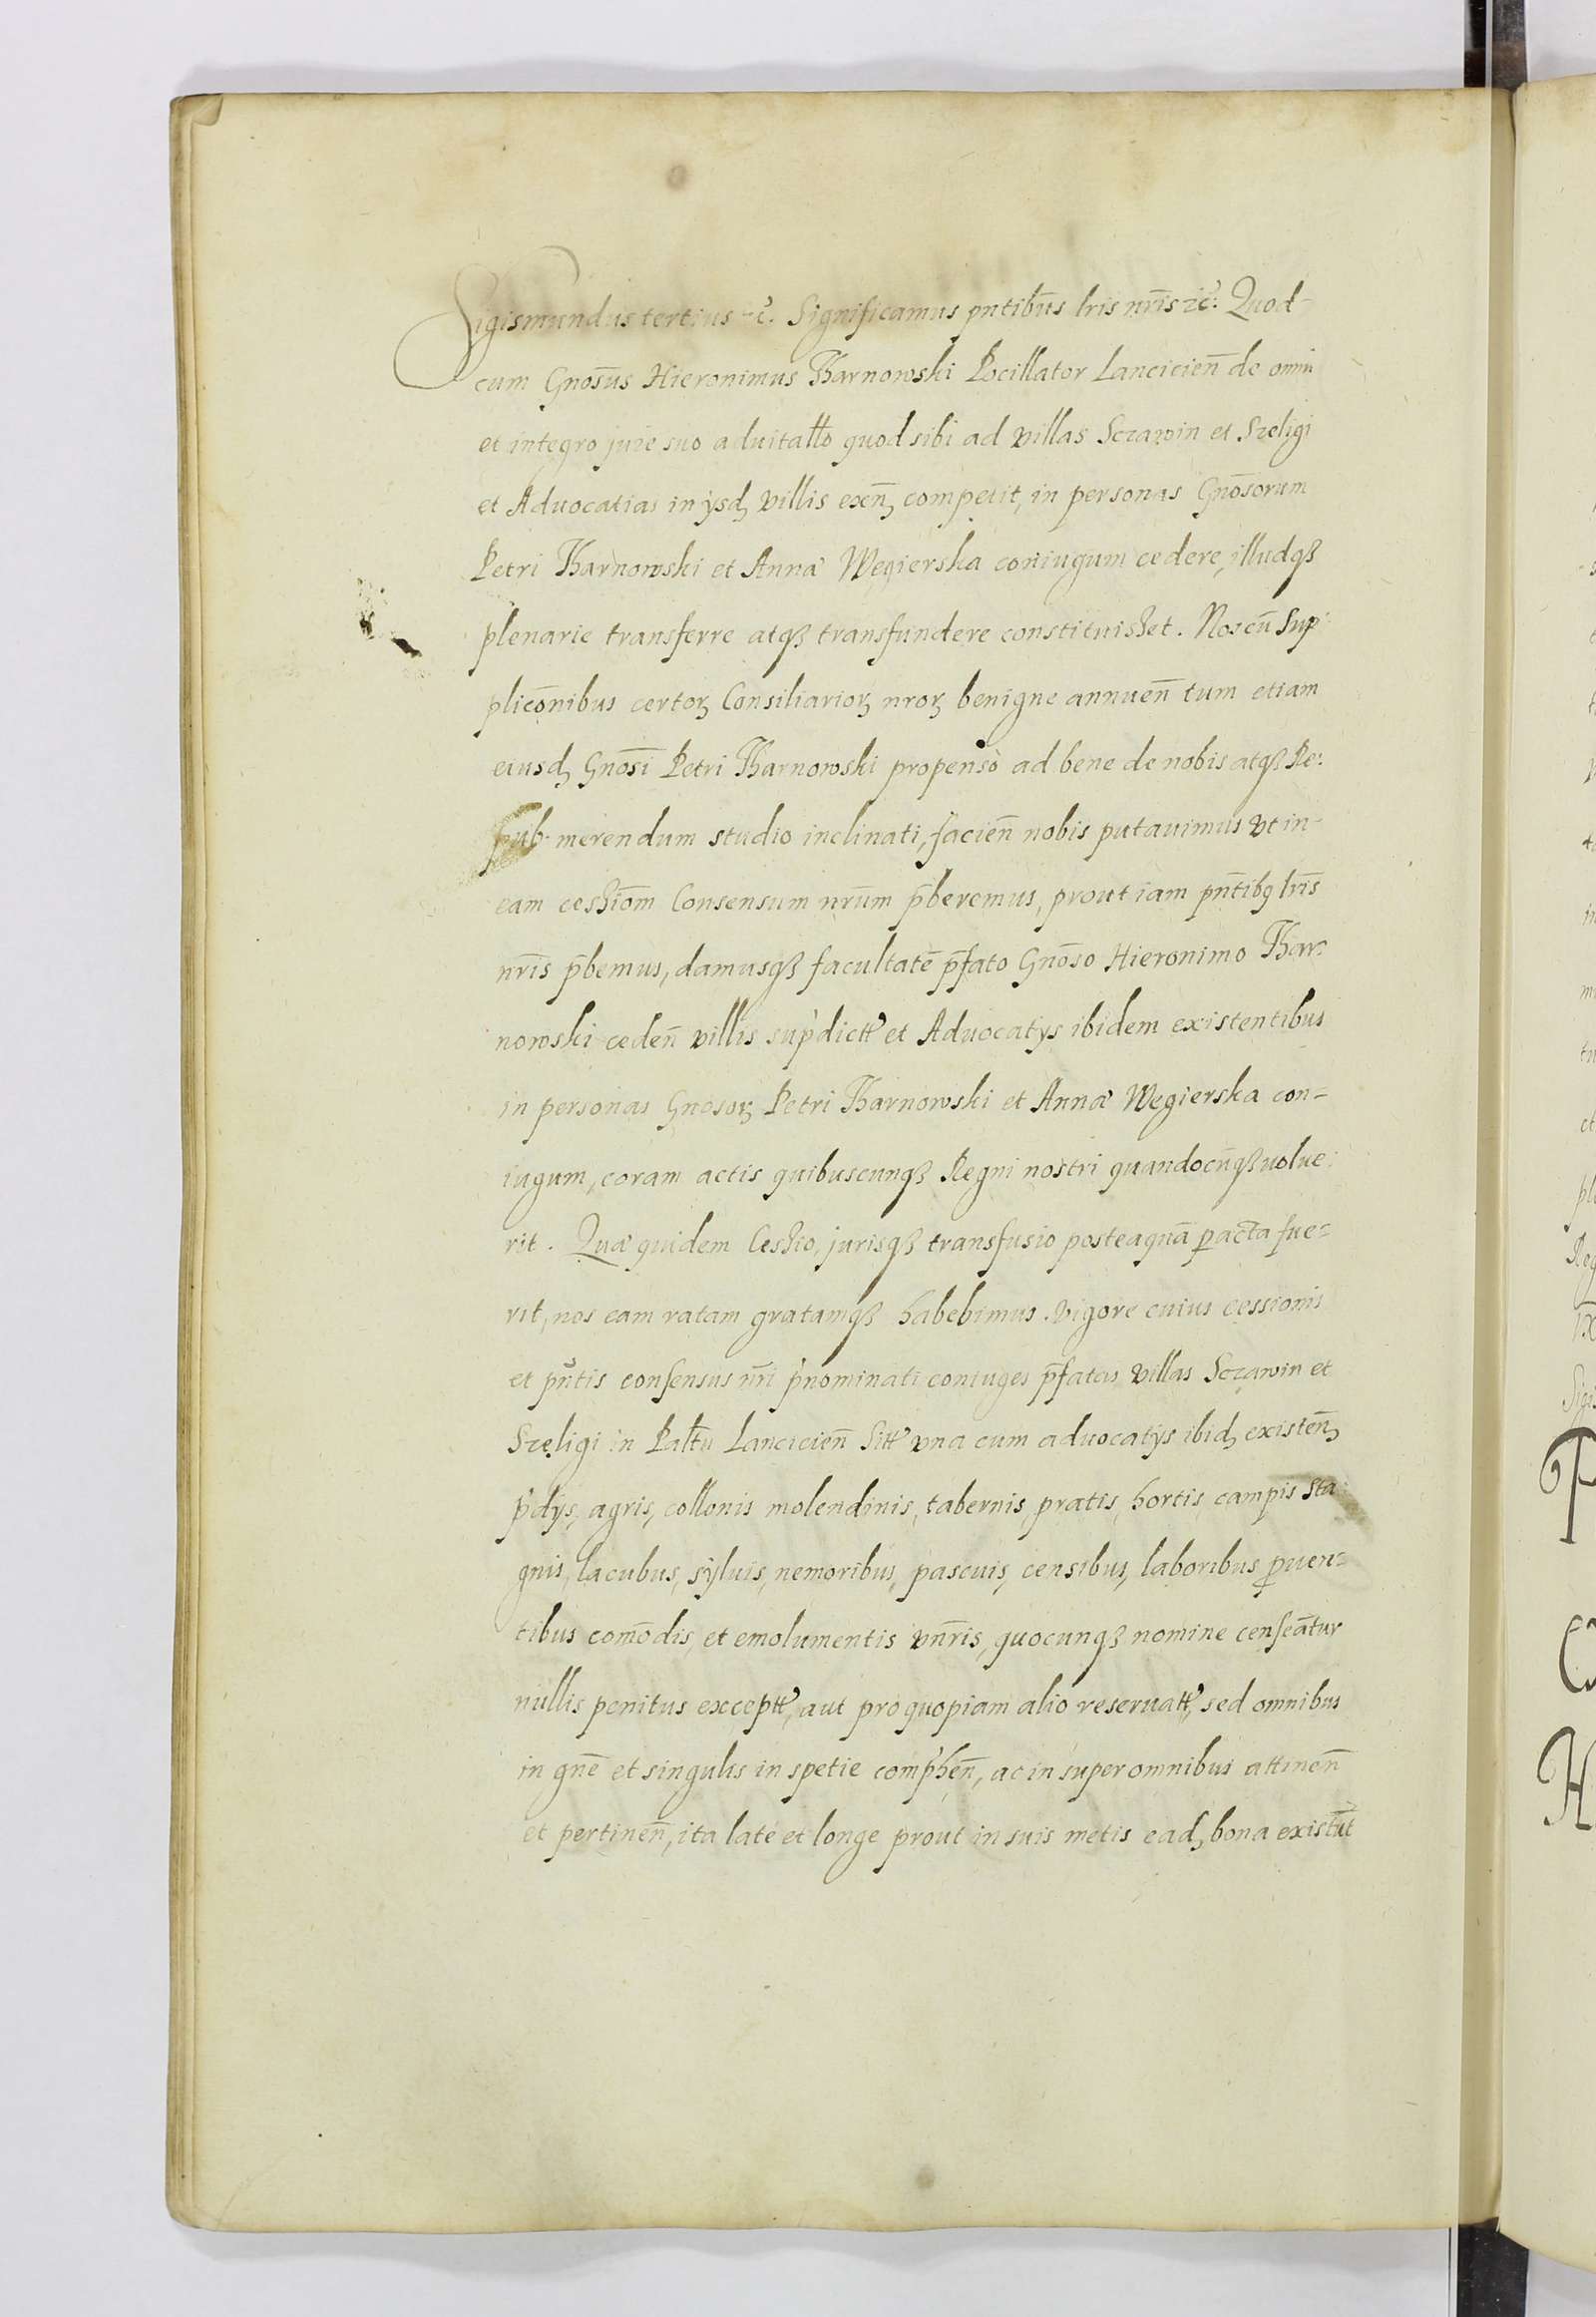 Sigismundus tertius ꝛc̃. Significamus pntibũs lris nr̃is ꝛc̃: Quod
cum Gnosũs Hieronimus Tharnowski Pocillator Lancicien̄ de omni
et integro jure suo aduitalło quod sibi ad villas Sczawin et Szeligi
et Aduocatias in ysdꝫ villis exn̄ꝫ competit, in personas Gnōsorum
Petri Tharnowski et Annæ Węgierska coniugum cedere, illudqꝫ
plenarie transferre atqꝫ transfundere constituisset. Nos cū sup
plicōnibus certoꝝ Consiliarioꝝ nroꝝ benigne annuen̄ tum etiam
eiusdꝫ Gnosī Petri Tharnowski propenso ad bene de nobis atqꝫ Re:
pub. merendum studio inclinati, facien̄ nobis putauimus vt in
eam cessiōm Consensum nrūm p̄beremus, prout iam pn̄tibꝫ lrīs
nrīs p̄bemus, damusqꝫ facultatē p̄fato Gnōso Hieronimo Thar:
nowski ceden̄ villis sup̄dictt' et Aduocatÿs ibidem existentibus
in personas Gnosoꝝ Petri Tharnowski et Annæ Węgierska con=
iugum, coram actis quibuscunqꝫ Regni nostri quandocūqꝫ volue:
rit. Quæ quidem Cessio, jurisqꝫ transfusio posteaquā ꝑacta fue=
rit, nos eam ratam gratamqꝫ habebimus. vigore cuius cessionis
et pn̄tis consensus nr̄i p̄nominati coniuges p̄fatas villas Sczawin et
Szęligi in Pałtu Lancicien̄ Sitt' vna cum aduocatÿs ibidꝫ existen̄ꝫ
p̄dÿs, agris, collonis molendinis, tabernis, pratis, hortis, campis sta
gnis, lacubus, syluis, nemoribus, pascuis, censibus, laboribus ꝓuen=
tibus comōdis, et emolumentis vn̄ris, quocunqꝫ nomine censeātur
nullis penitus exceptt', aut pro quopiam alio reseruatt', sed omnibus
in gn̄e et singulis in spetie comp̄hen̄, ac in super omnibus attinen̄
et pertinen̄, ita late et longe prout in suis metis eadꝫ bona existūt